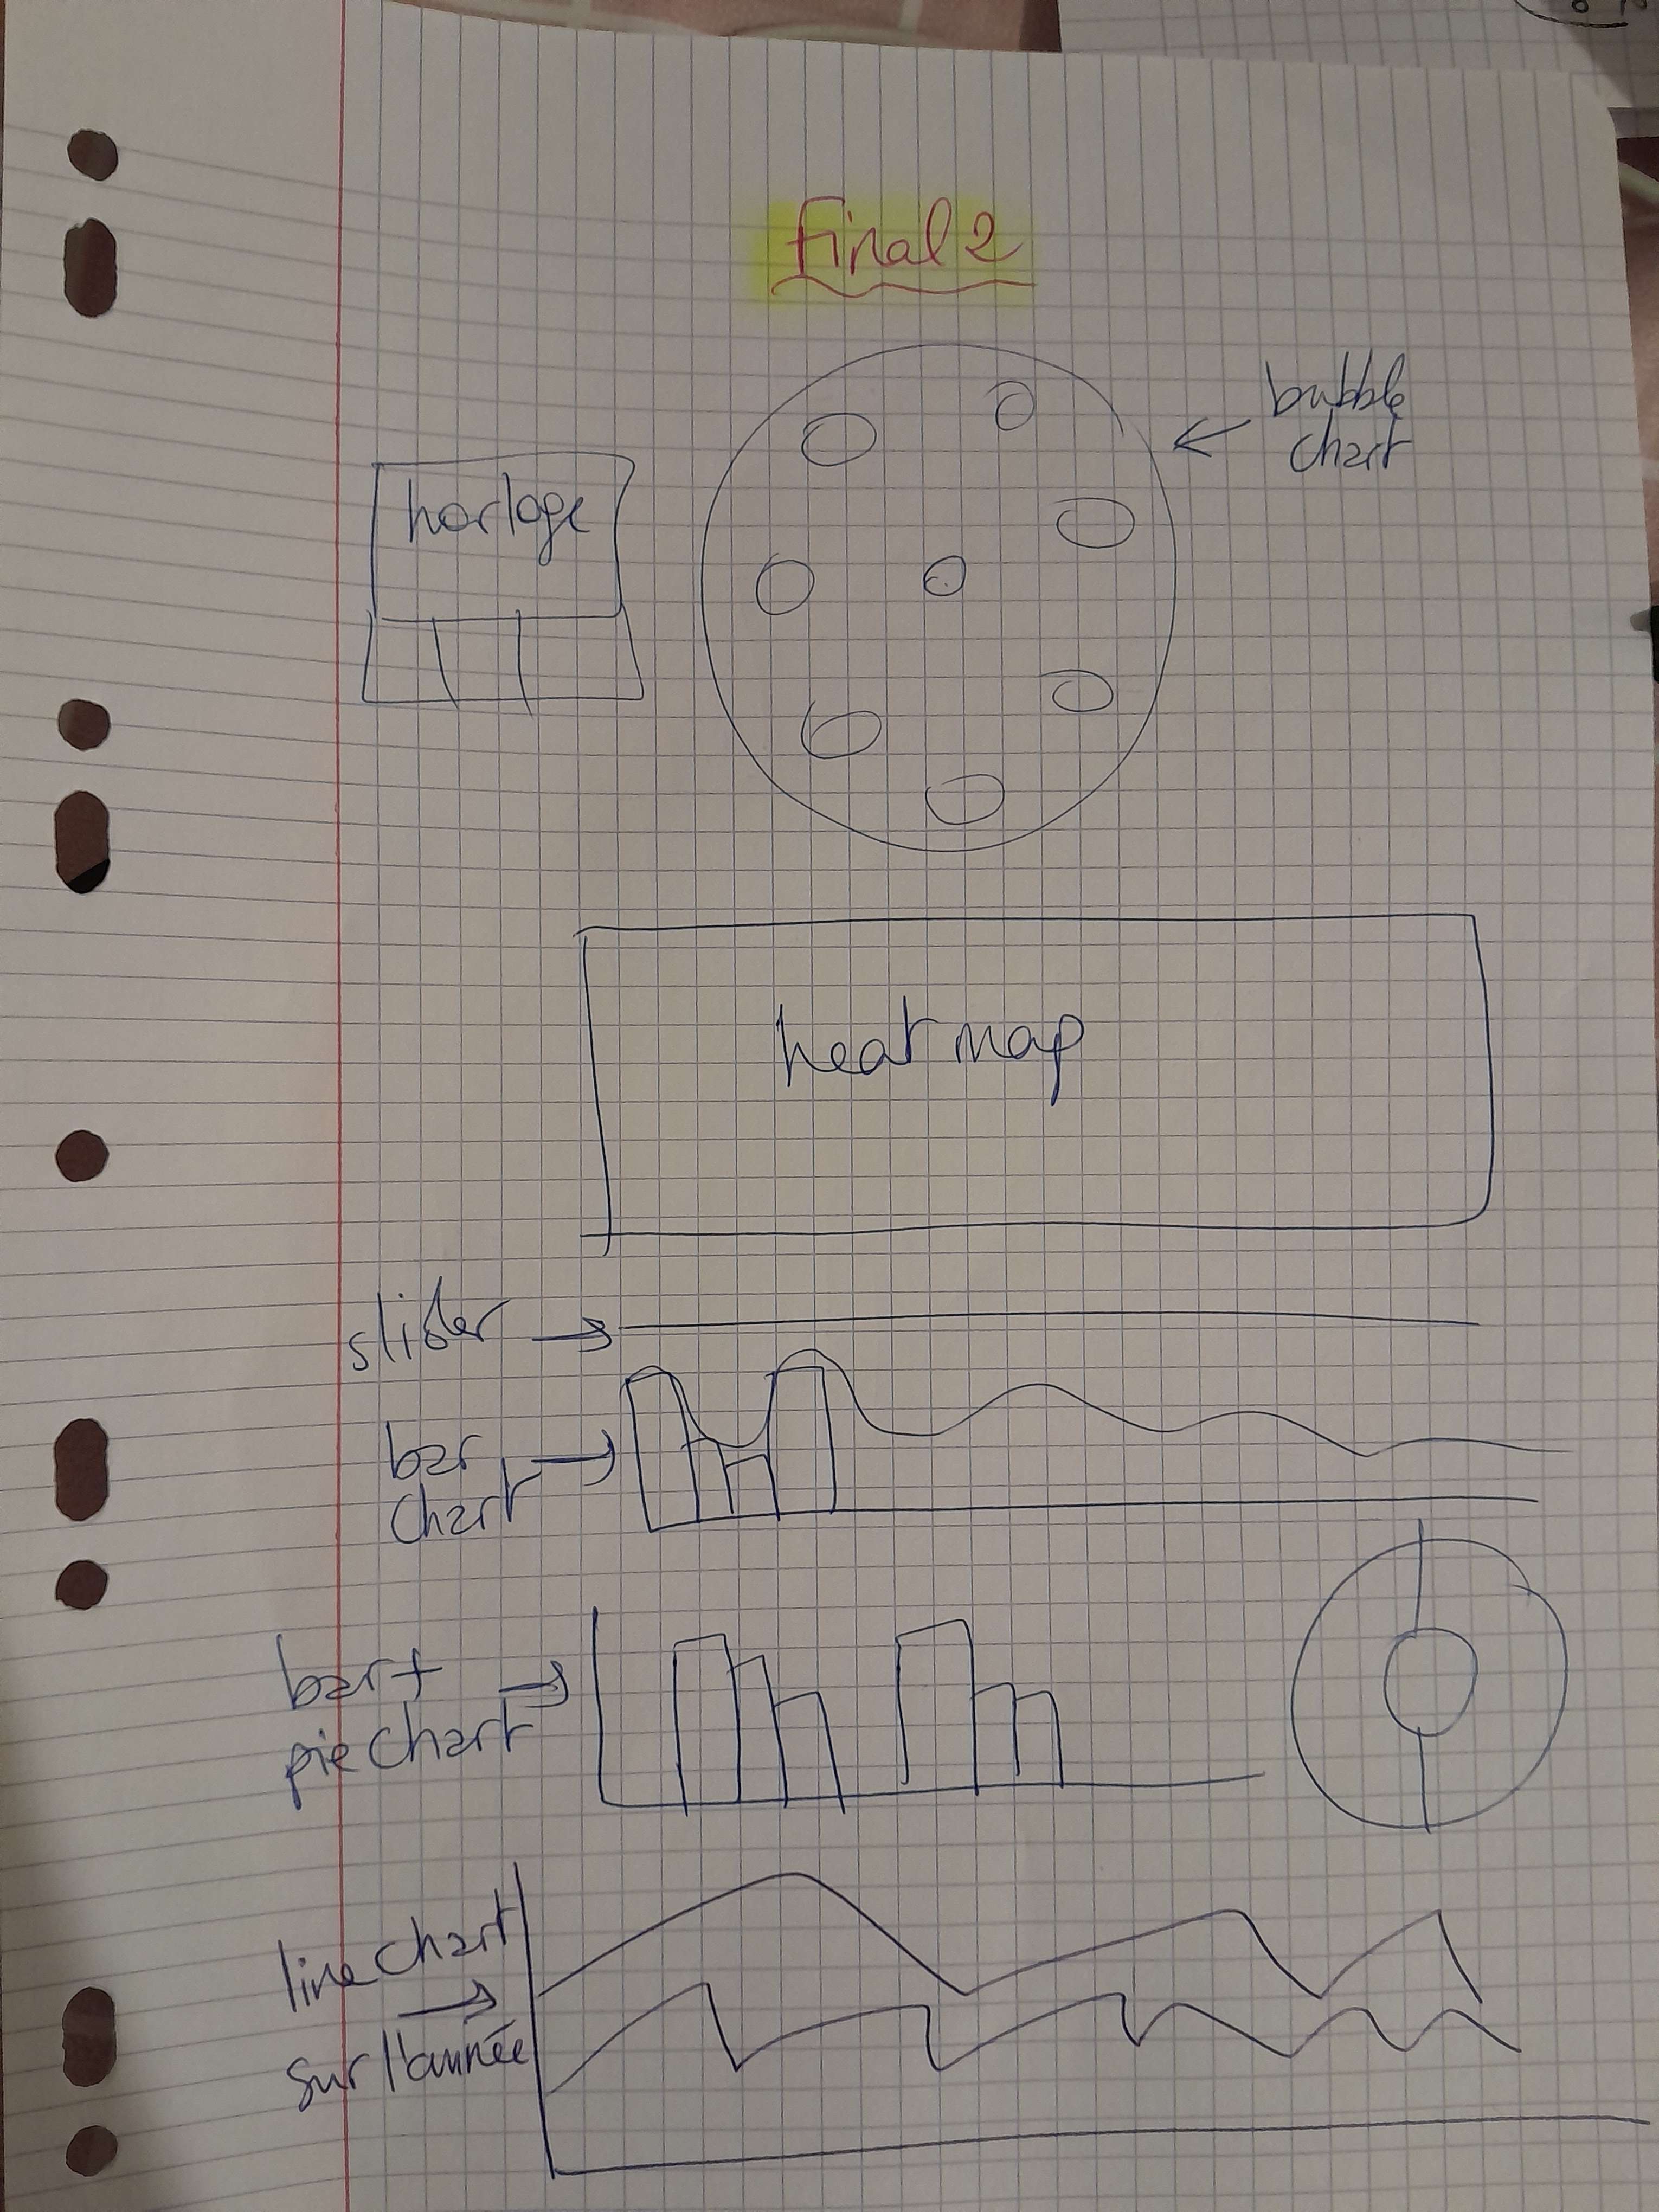 Final 2
bubble
chart
horloge
heat map
slider
bar
chart
bar +
pie chart
line chart
sur l'année